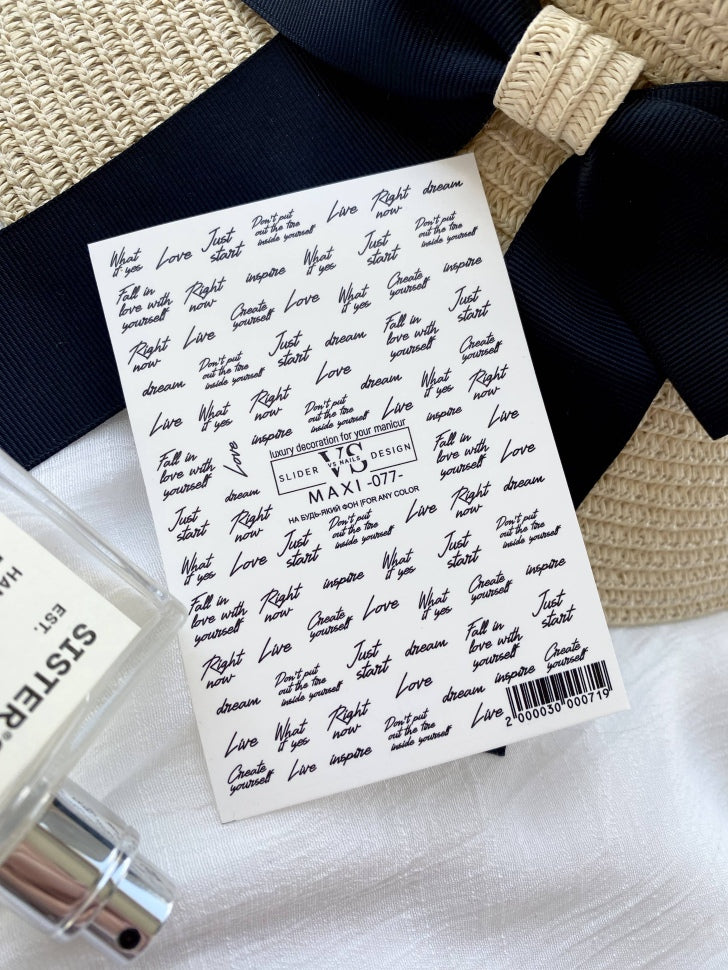 What
if yes
Love
Just
start
Don't put
out the fire
inside yourself
Live
Right
now
dream
Fall in
love with
yourself
Right
now
inspire
What
if yes
Just
start
Don't put
out the fire
inside yourself
Create
yourself
Love
What
if yes
Create
yourself
inspire
Right
now
Live
Just
start
dream
Fall in
love with
yourself
Just
start
dream
Don't put
out the fire
inside yourself
Love
dream
What
if yes
Create
yourself
Right
now
Live
What
if yes
Right
now
Don't put
out the fire
inside yourself
Live
inspire
Live
Fall in
love with
yourself
Love
inspire
dream
luxury decoration for your manicur
SLIDER VS DESIGN
VS NAILS
MAXI -077-
НА БУДЬ-ЯКИЙ ФОН |FOR ANY COLOR
Fall in
love with
yourself
Love
Just
start
Right
now
Don't put
out the fire
inside yourself
Live
Right
now
dream
What
if yes
Love
Just
start
What
if yes
Just
start
Don't put
out the fire
inside yourself
Fall in
love with
yourself
Right
now
inspire
Create
yourself
Love
What
if yes
Create
yourself
inspire
Right
now
Live
Just
start
dream
Fall in
love with
yourself
Just
start
dream
Don't put
out the fire
inside yourself
Love
dream
inspire
Create
yourself
Live
What
if yes
Right
now
Don't put
out the fire
inside yourself
Live
Create
yourself
Live
inspire
2 000030 000719
EST.
SISTER